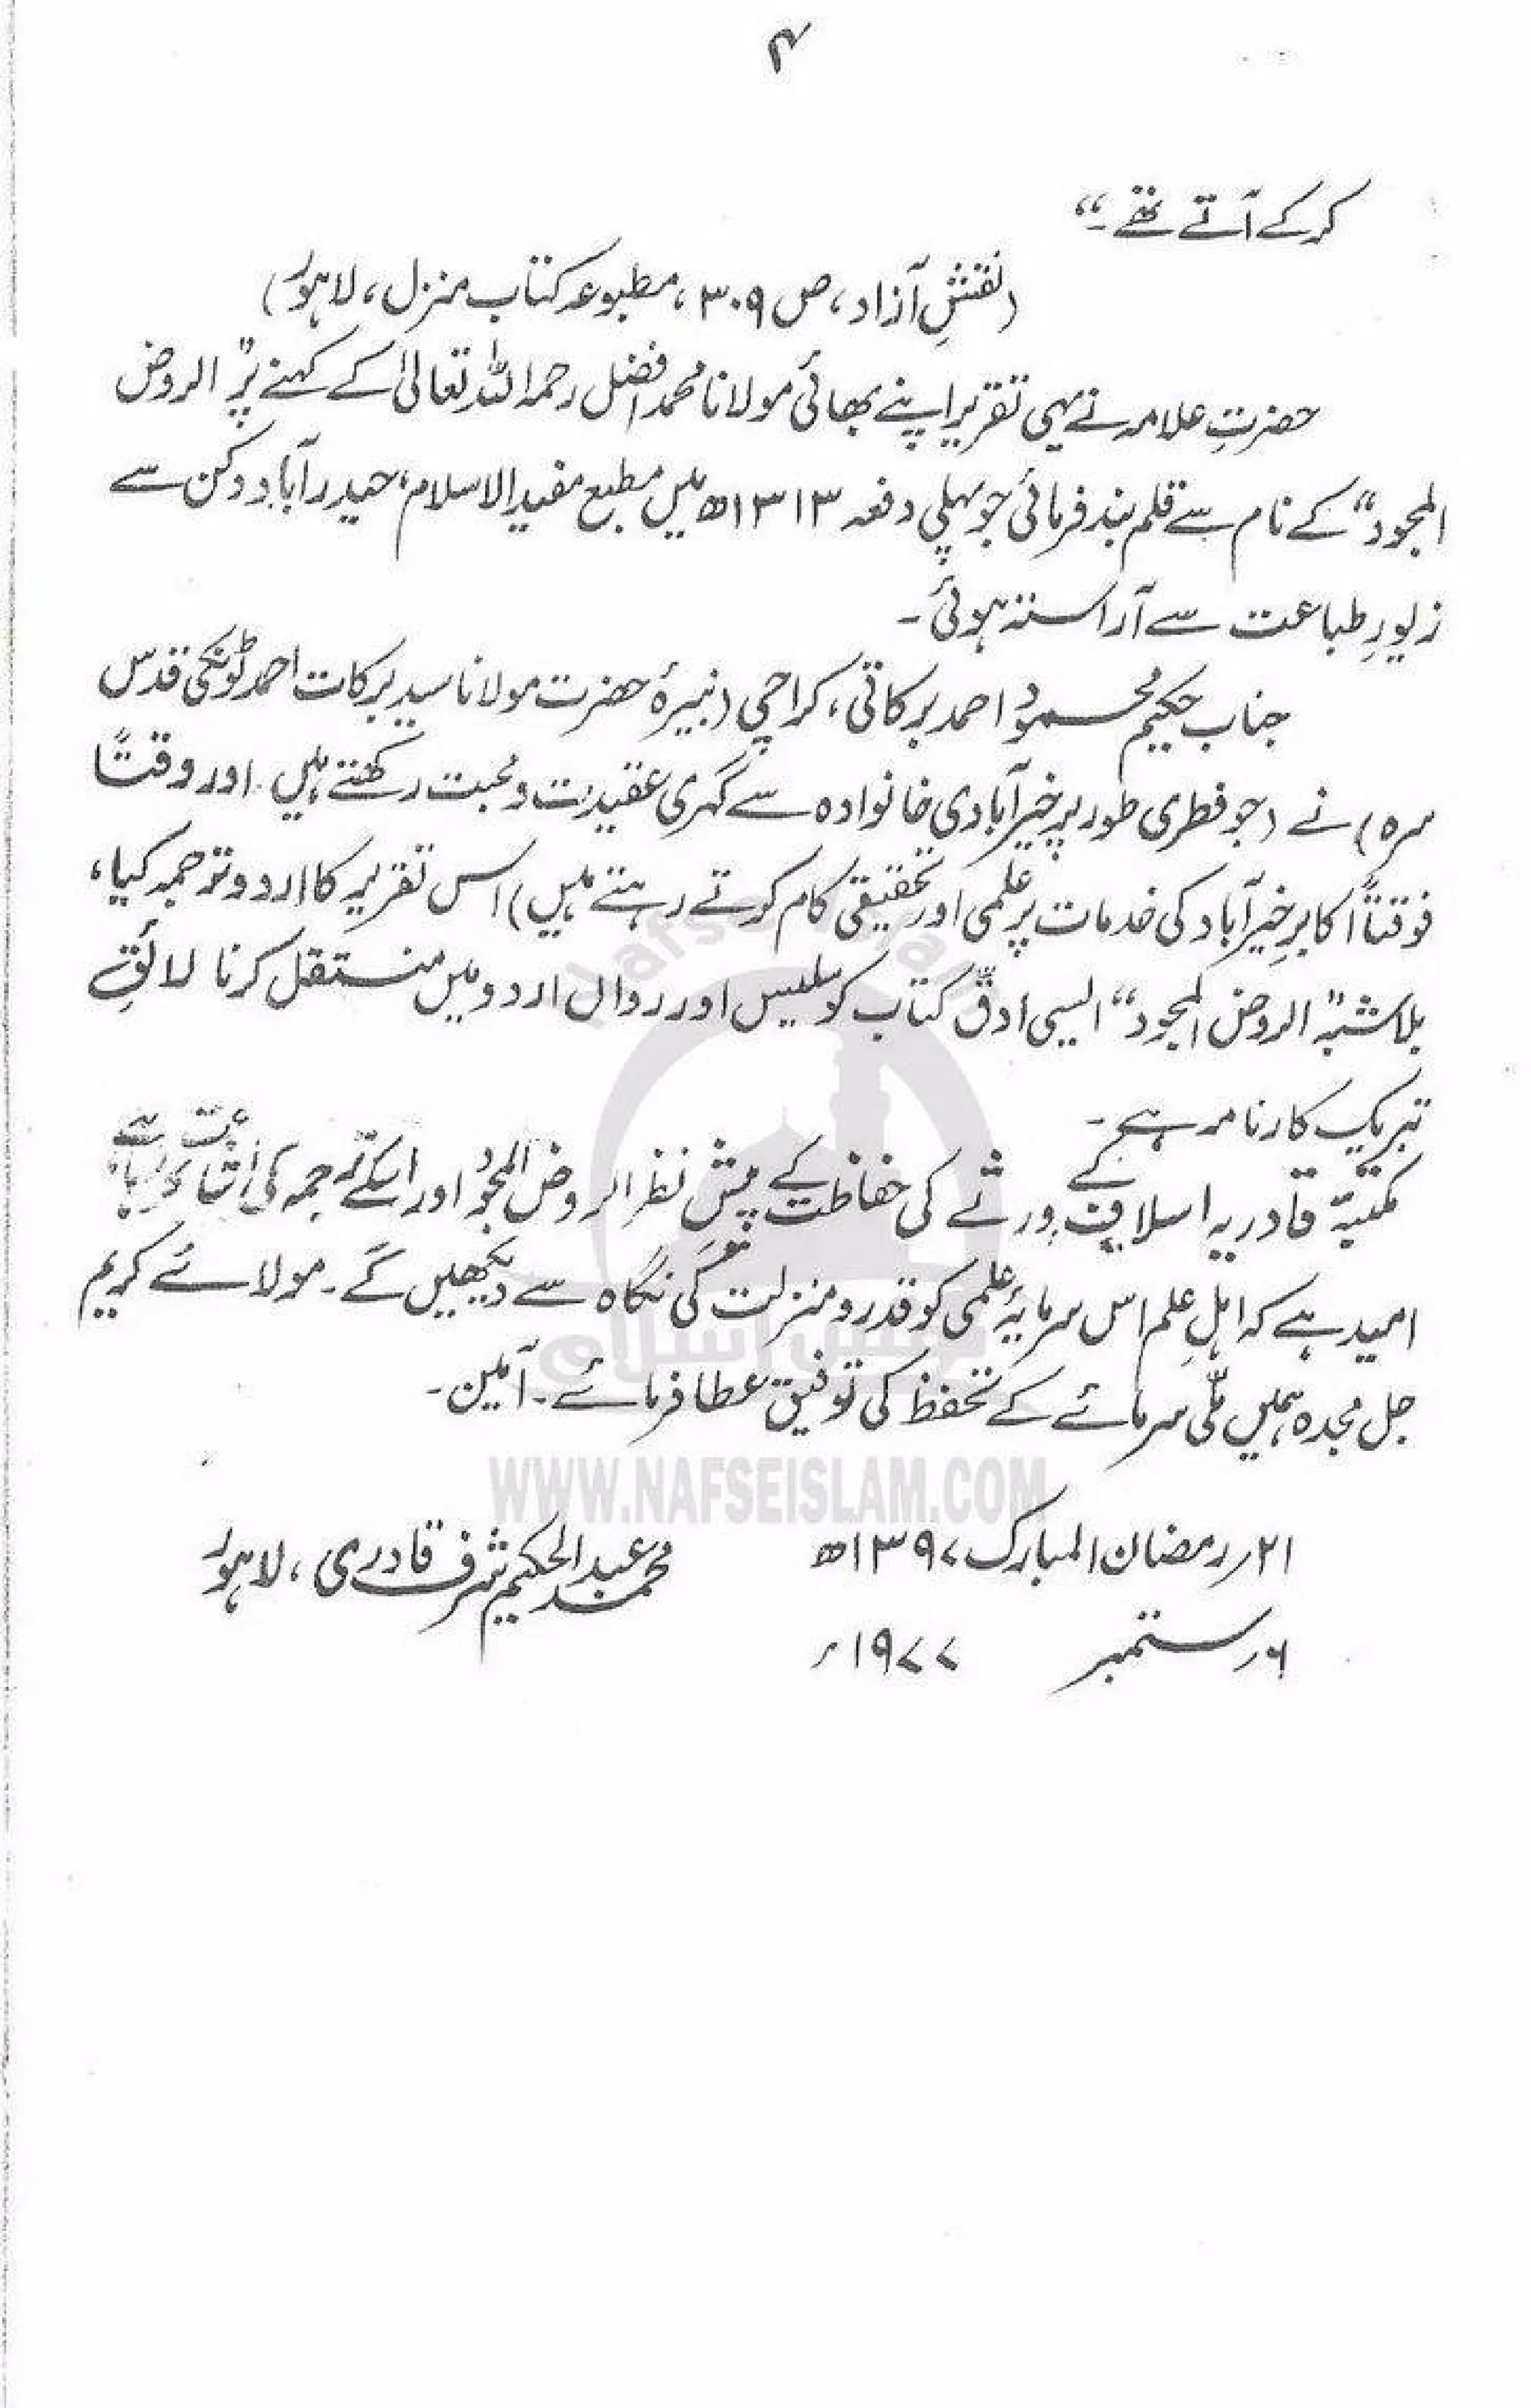 ۴
کر کے آتے تھے۔“
(نقشِ آزاد، ص ۳۰۹، مطبوعہ کتاب منزل، لاہور)
حضرتِ علامہ نے یہی تقریر اپنے بھائی مولانا محمد افضل رحمہ اللہ تعالیٰ کے کہنے پر ”الروض
المجود“ کے نام سے قلم بند فرمائی جو پہلی دفعہ ۱۳۱۳ھ میں مطبع مفید الاسلام، حیدر آباد دکن سے
زیورِ طباعت سے آراستہ ہوئی۔
جناب حکیم محمود احمد برکاتی، کراچی (نبیرۂ حضرت مولانا سید برکات احمد ٹونکی قدس
سرہ) نے (جو فطری طور پر خیرآبادی خانوادہ سے گہری عقیدت و محبت رکھتے ہیں۔ اور وقتاً
فوقتاً اکابرِ خیرآباد کی خدمات پر علمی اور تحقیقی کام کرتے رہتے ہیں) اس تقریر کا اردو ترجمہ کیا،
بلاشبہ ”الروض المجود“ ایسی ادقّ کتاب کو سلیس اور رواں اردو میں منتقل کرنا لائقِ
تبریک کارنامہ ہے۔
مکتبۂ قادریہ اسلاف کے ورثے کی حفاظت کے پیشِ نظر الروض المجود اور اسکے ترجمہ کی
امید ہے کہ اہلِ علم اس سرمایۂ علمی کو قدر و منزلت کی نگاہ سے دیکھیں گے۔ مولائے کریم
جل مجدہ ہمیں ملّی سرمائے کے تحفظ کی توفیق عطا فرمائے۔ آمین۔
Nafse Islam
نفس اسلام
WWW.NAFSEISLAM.COM
۲۱؍ رمضان المبارک ۱۳۹۷ھ محمد عبدالحکیم شرف قادری، لاہور
۶؍ ستمبر ۱۹۷۷ء